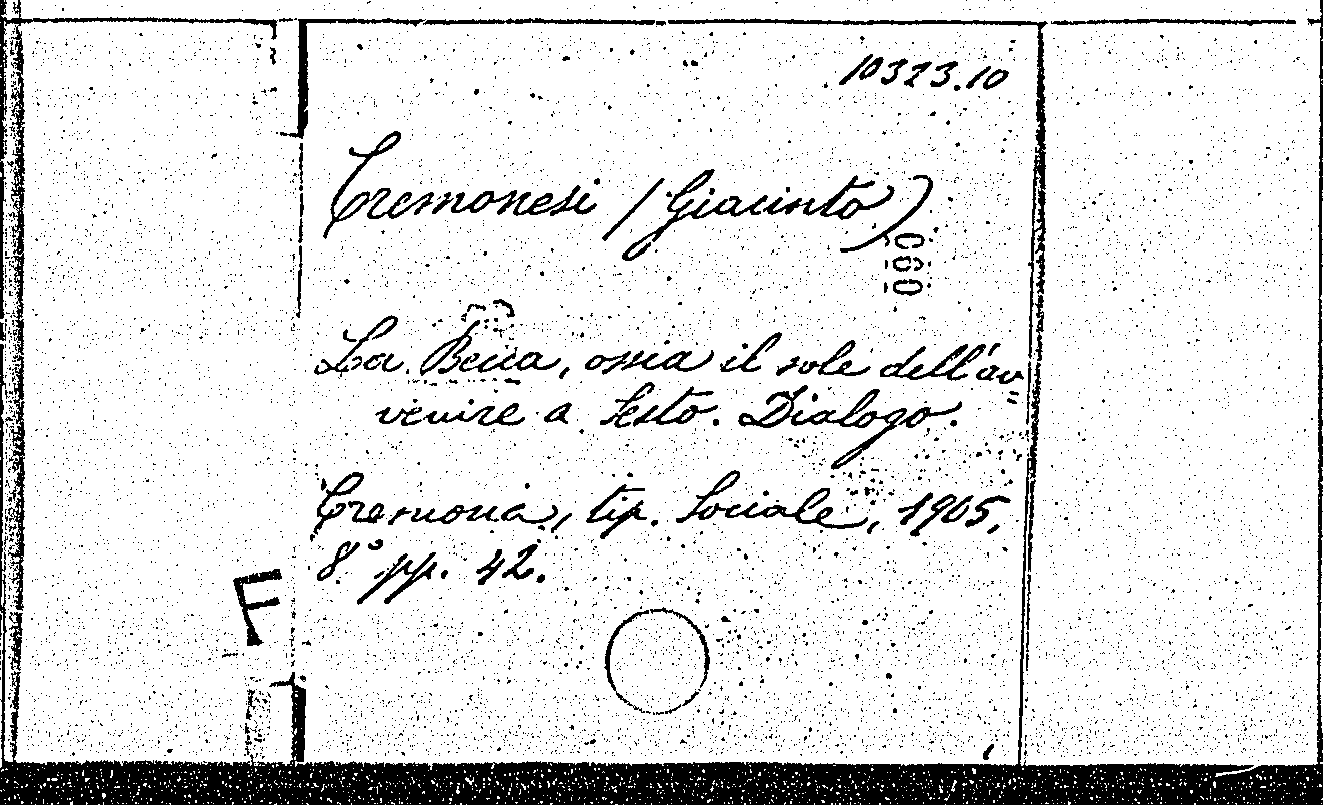 10323.10
Cremonesi (Giacinto)
000
La Becca, ossia il sole dell'av
venire a Sesto. Dialogo.
Cremona, tip. Sociale, 1905,
8° pp. 42.
F